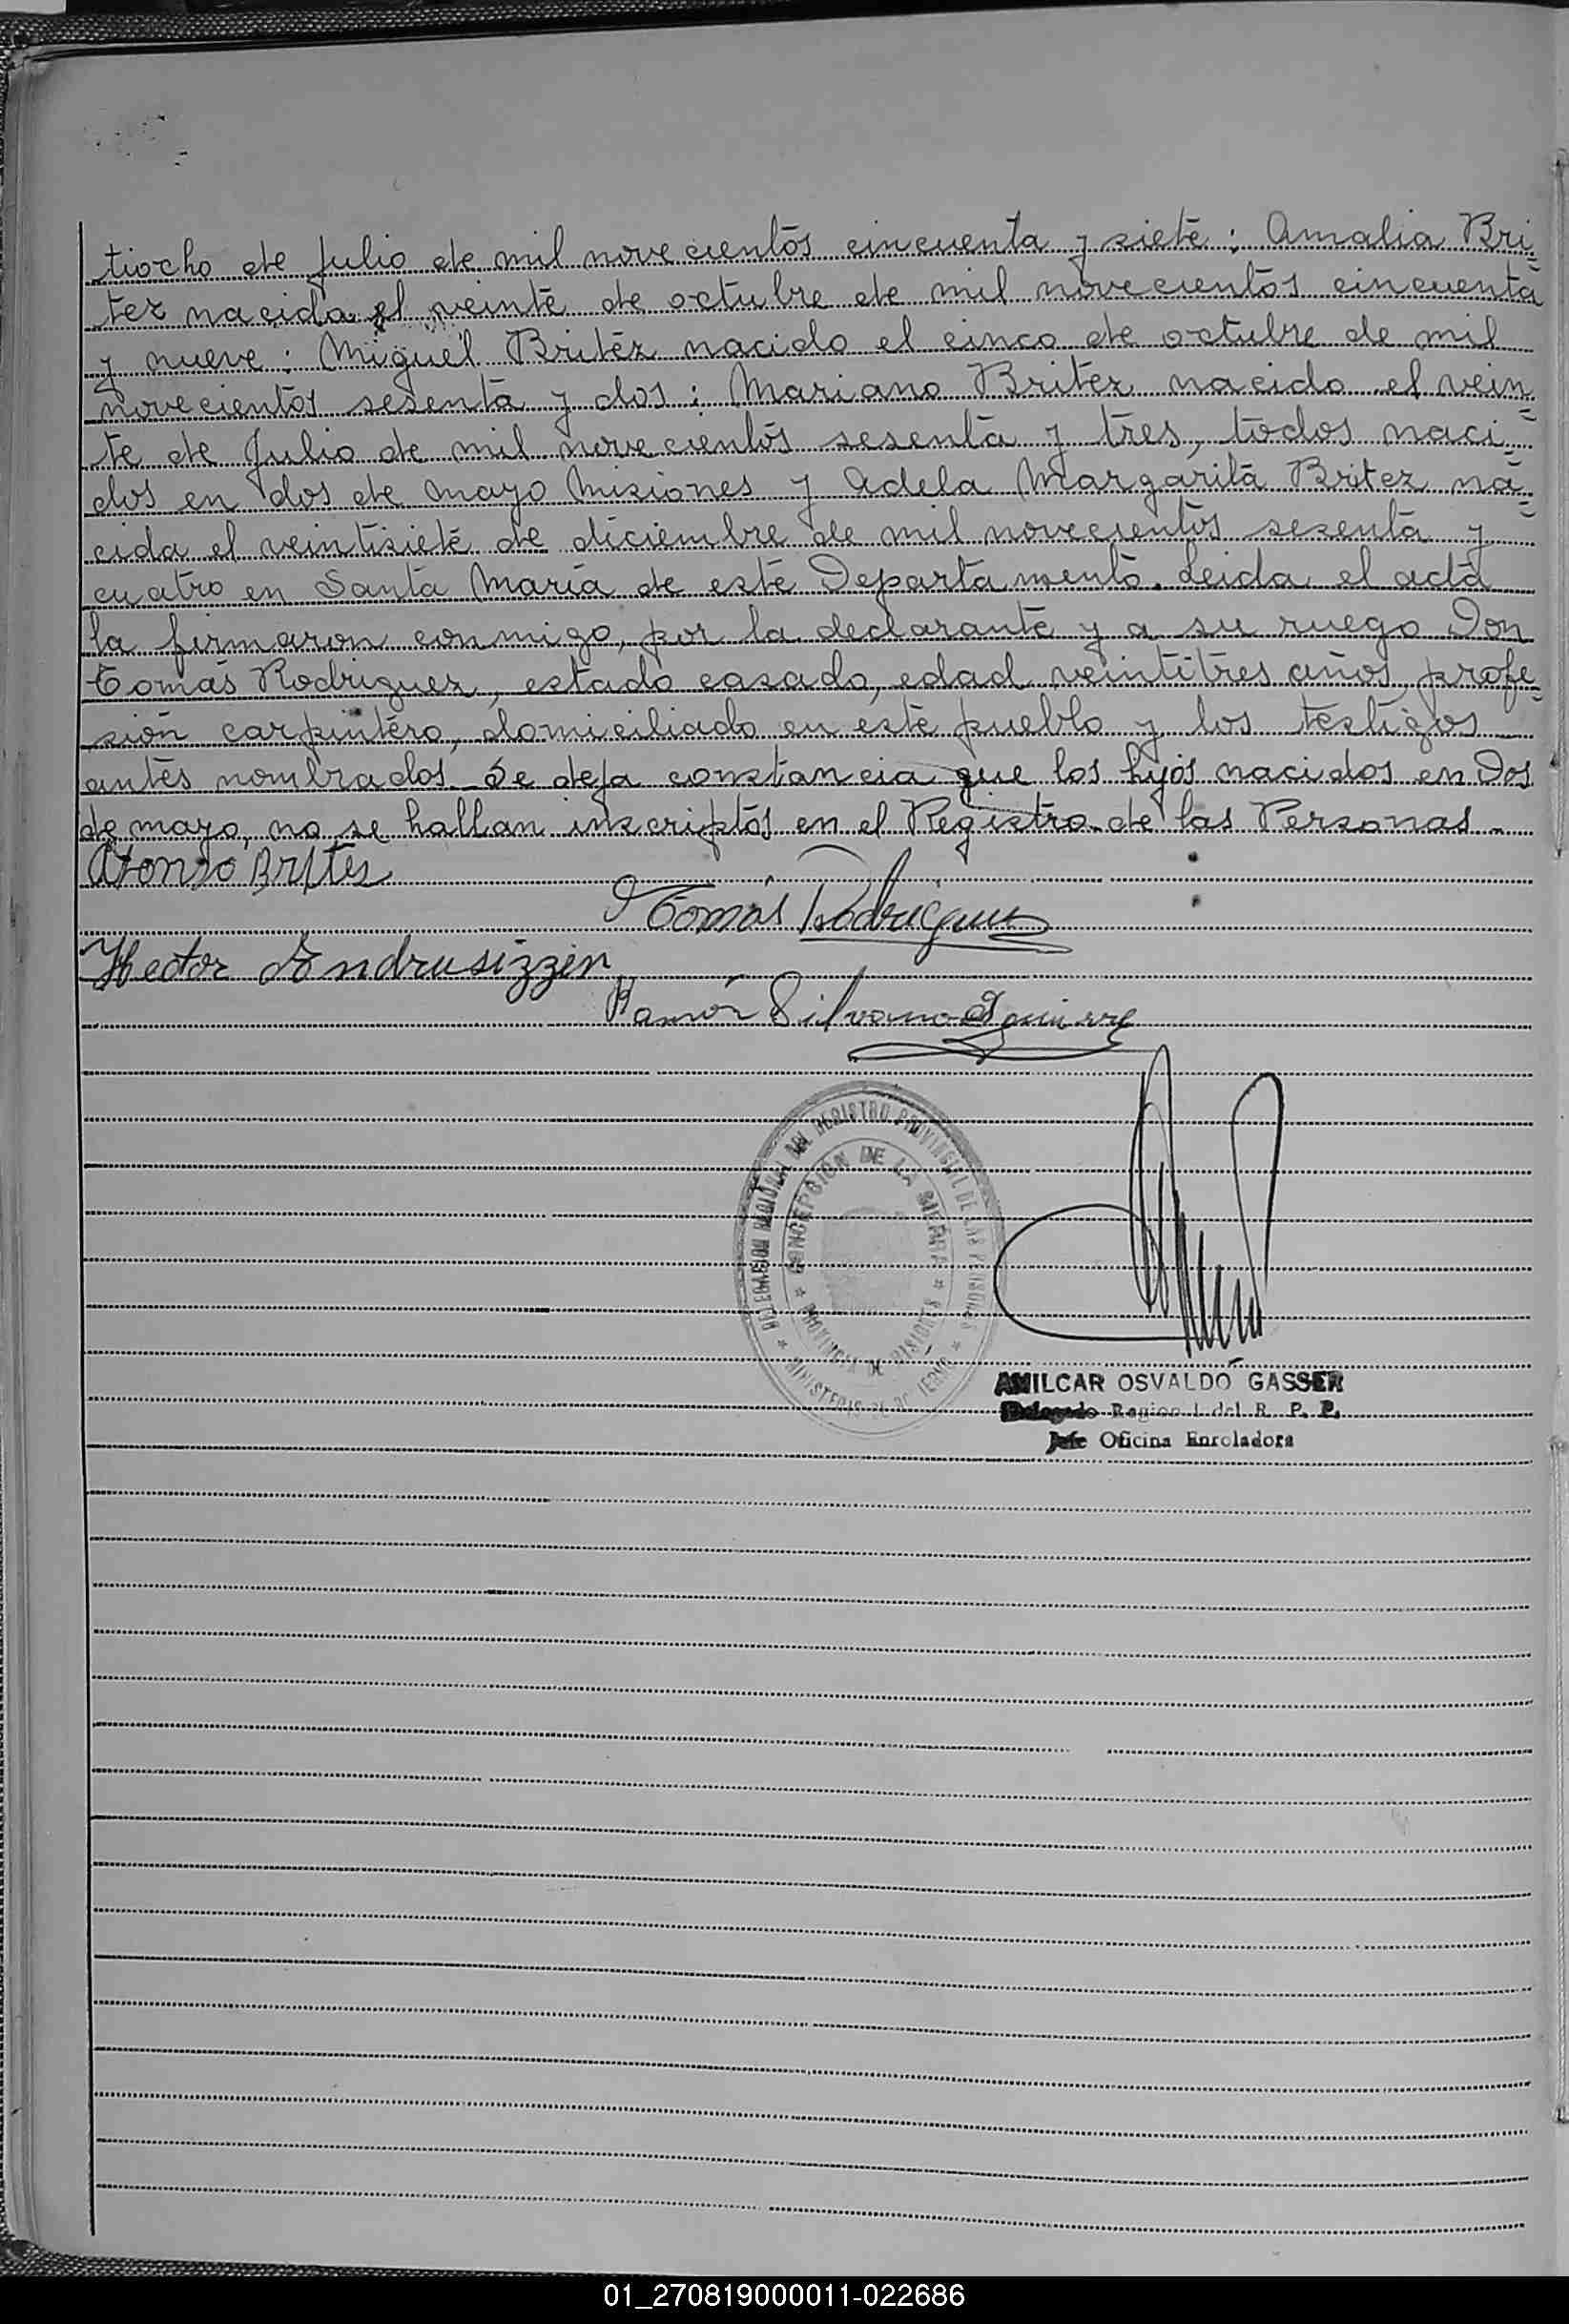 tiocho de Julio de mil novecientos cincuenta y siete; Amalia Bri-
tez nacida el veinte de octubre de mil novecientos cincuenta
y nueve; Miguel Britez nacido el cinco de octubre de mil
novecientos sesenta y dos; Mariano Britez nacido el vein-
te de Julio de mil novecientos sesenta y tres, todos naci-
dos en dos de mayo Misiones y Adela Margarita Britez na-
cida el veintisiete de diciembre de mil novecientos sesenta y
cuatro en Santa María de este Departamento. Leida el acta
la firmaron conmigo, por la declarante y a su ruego Don
Tomás Rodriguez, estado casado, edad veintitrés años, profe-
sión carpintero, domiciliado en este pueblo y los testigos
antes nombrados. Se deja constancia que los hijos nacidos en Dos
de mayo, no se hallan inscriptos en el Registro de las Personas.-
Tomás Rodriguez
Hector
Ramón Silvano Aguirre
DELEGACION REGIONAL DEL REGISTRO PROVINCIAL DE LAS PERSONAS
* CONCEPCION DE LA SIERRA *
PROVINCIA DE MISIONES
* MINISTERIO DE GOBIERNO *
AMILCAR OSVALDO GASSER
Delegado Regional del R. P. P.
Jefe Oficina Enroladora
01_270819000011-022686